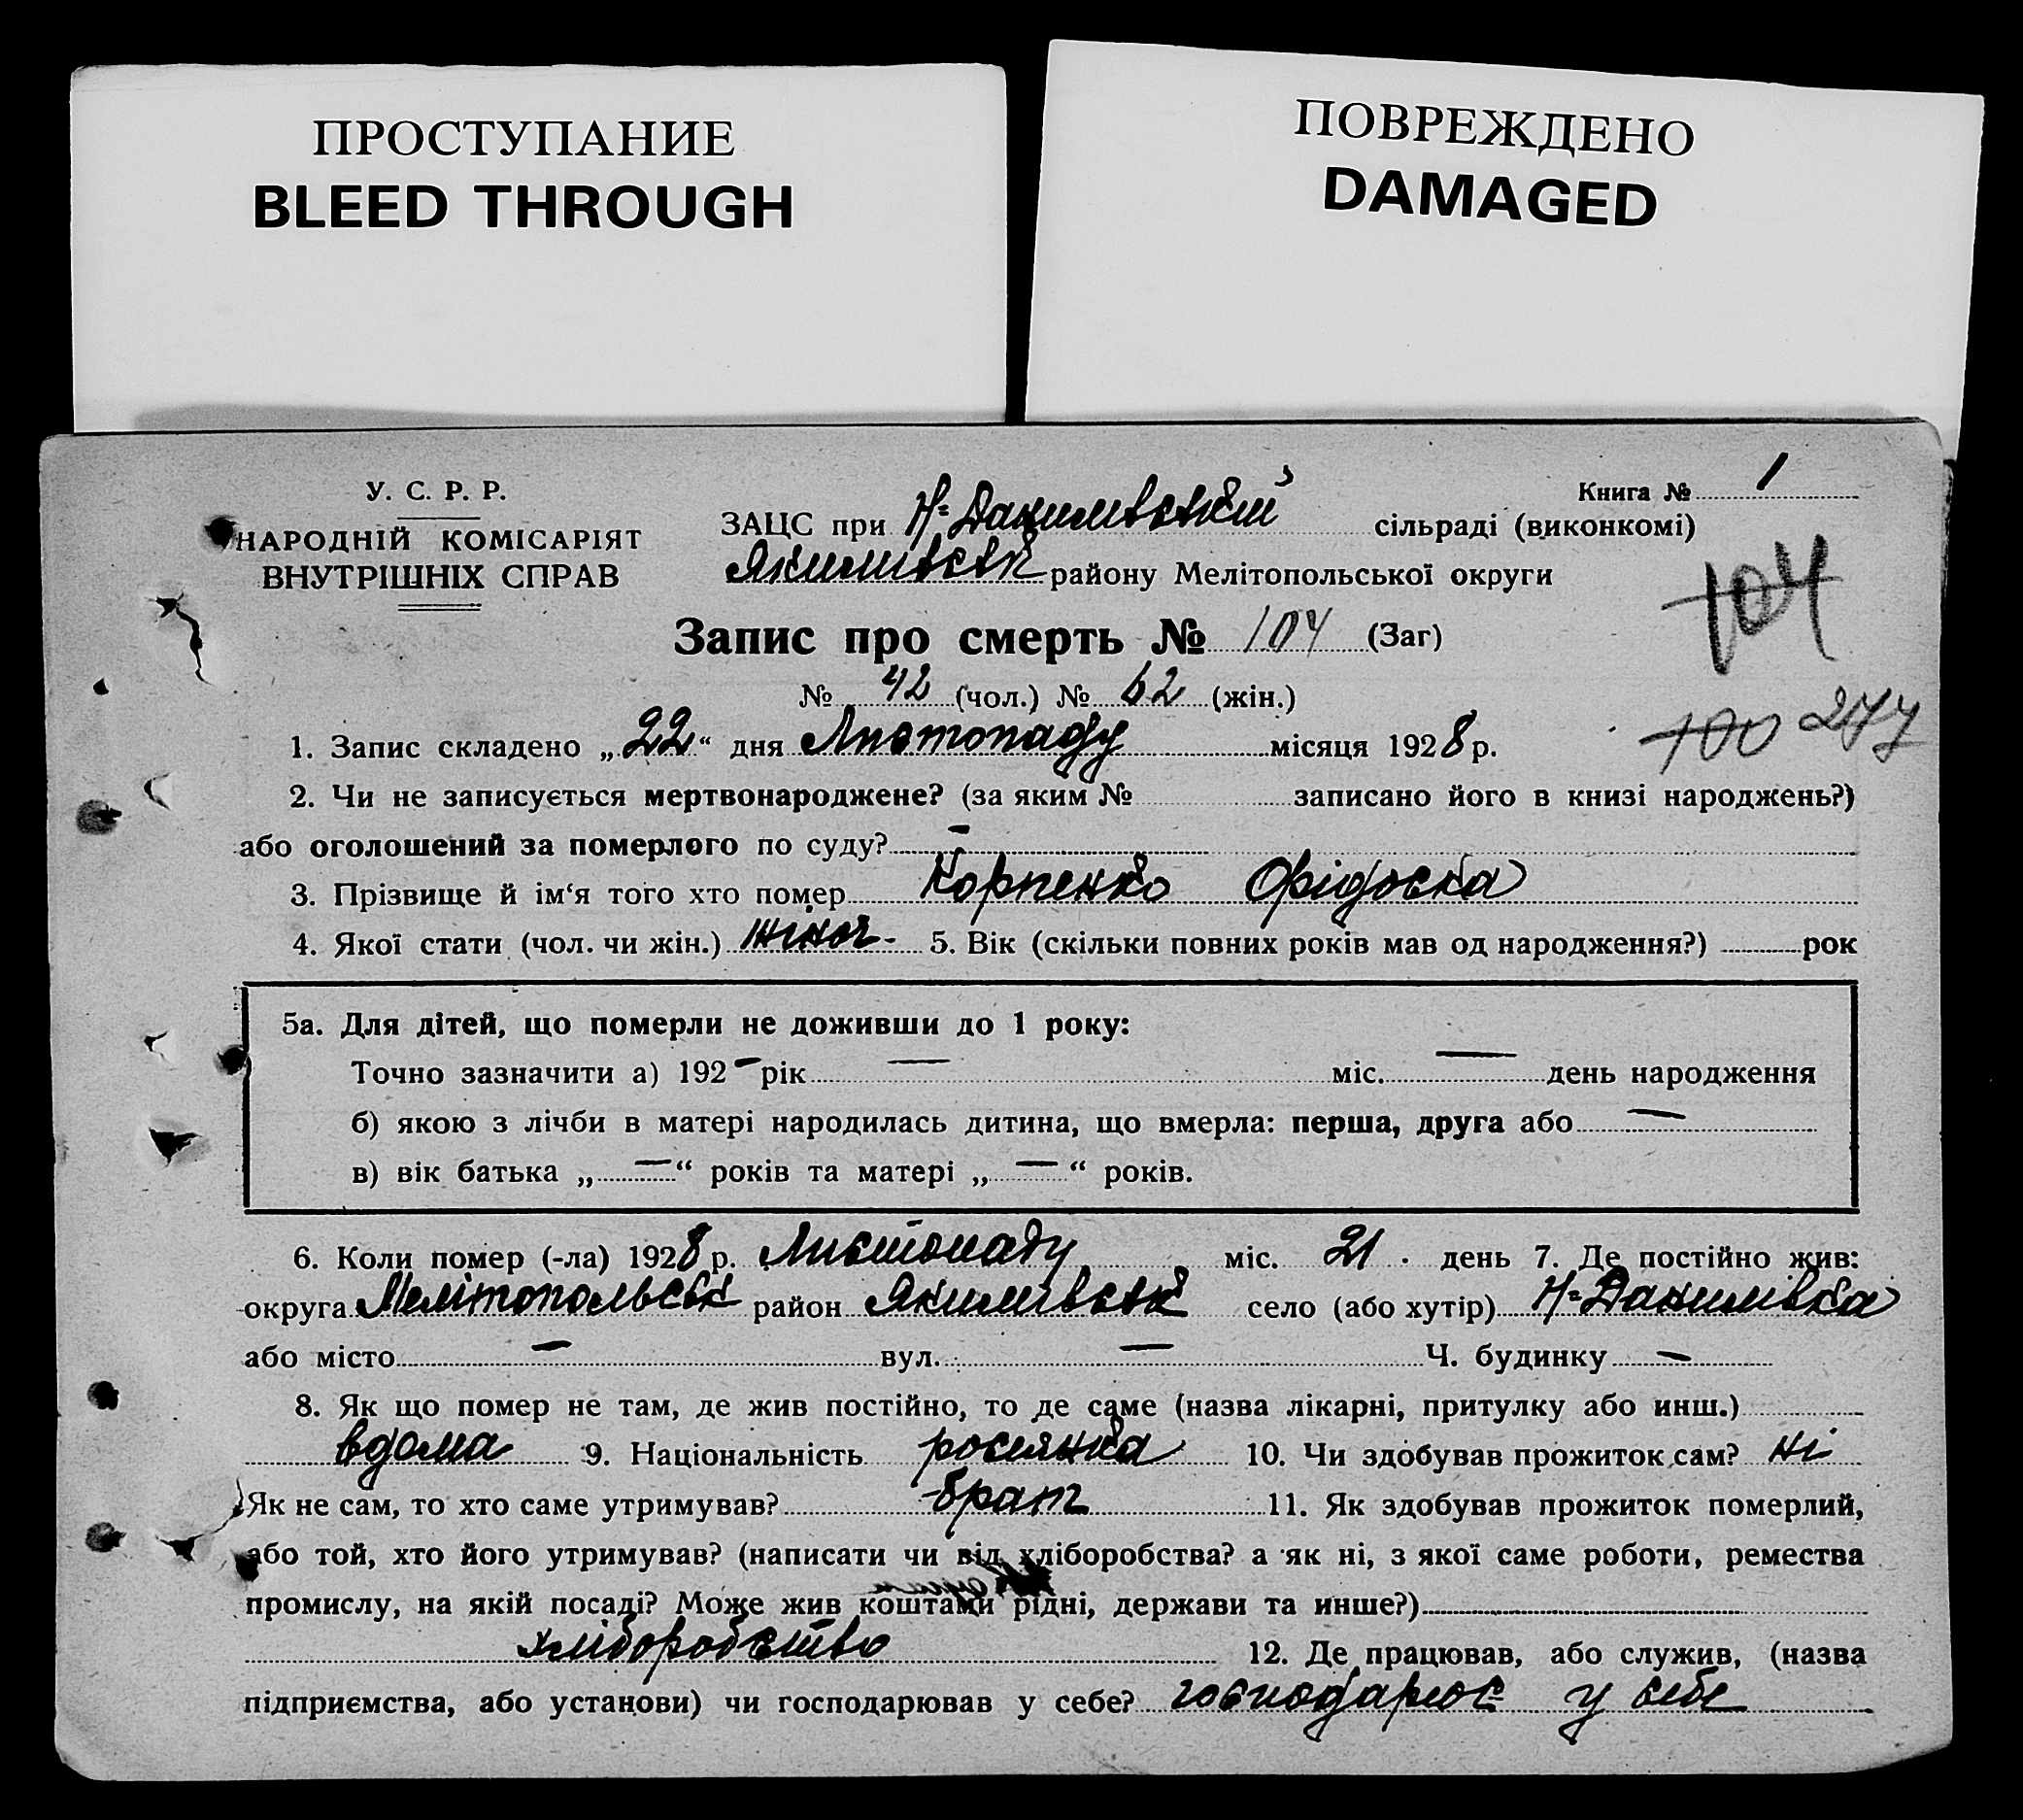 ПРОСТУПАНИЕ
BLEED THROUGH
ПОВРЕЖДЕНО
DAMAGED
У. С. Р. Р.
НАРОДНІЙ КОМІСАРІЯТ
ВНУТРІШНІХ СПРАВ
Книга № 1
ЗАЦС при Н-Данилівській сільраді (виконкомі)
Якимівськ району Мелітопольської округи
104
Запис про смерть № 104 (Заг)
№ 42 (чол.) № 62 (жін.)
100 247
1. Запис складено „22“ дня Листопаду місяця 1928 р.
2. Чи не записується мертвонароджене? (за яким № записано його в книзі народжень?)
або оголошений за померлого по суду? –
3. Прізвище й ім‘я того хто помер Корпенко Фідоска
4. Якої стати (чол. чи жін.) жіноч- 5. Вік (скільки повних років мав од народження?) рок
5а. Для дітей, що померли не доживши до 1 року:
Точно зазначити а) 192 – рік — міс. — день народження
б) якою з лічби в матері народилась дитина, що вмерла: перша, друга або —
в) вік батька „—“ років та матері „—“ років.
6. Коли помер (-ла) 1928 р. Листопаду міс. 21 день 7. Де постійно жив:
округа Мелітопольськ район Якимівськ село (або хутір) Н-Данилівка
або місто — вул. — Ч. будинку —
8. Як що помер не там, де жив постійно, то де саме (назва лікарні, притулку або инш.)
вдома 9. Національність росиянка 10. Чи здобував прожиток сам? ні
Як не сам, то хто саме утримував? брат 11. Як здобував прожиток померлий,
або той, хто його утримував? (написати чи від хліборобства? а як ні, з якої саме роботи, ремества
промислу, на якій посаді? Може жив коштами рідні, держави та инше?)
хліборобство 12. Де працював, або служив, (назва
підприємства, або установи) чи господарював у себе? господарює у себе